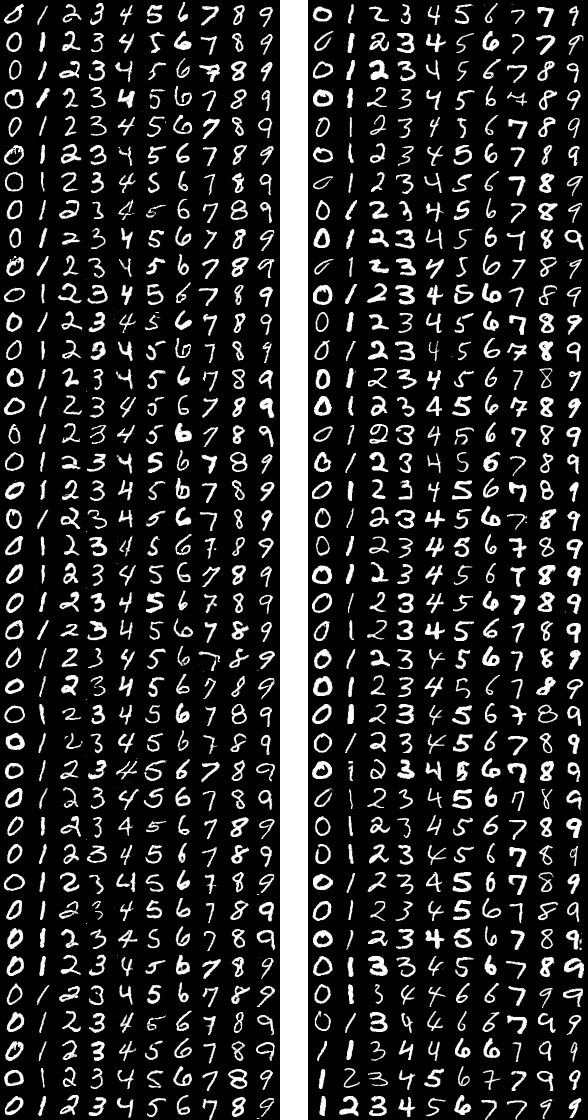 0 1 2 3 4 5 6 7 8 9 0 1 2 3 4 5 6 7 7 9
0 1 2 3 4 5 6 7 8 9 0 1 2 3 4 5 6 7 7 9
0 1 2 3 4 5 6 7 8 9 0 1 2 3 4 5 6 7 8 9
0 1 2 3 4 5 6 7 8 9 0 1 2 3 4 5 6 7 8 9
0 1 2 3 4 5 6 7 8 9 0 1 2 3 4 5 6 7 8 9
0 1 2 3 4 5 6 7 8 9 0 1 2 3 4 5 6 7 8 9
0 1 2 3 4 5 6 7 8 9 0 1 2 3 4 5 6 7 8 9
0 1 2 3 4 5 6 7 8 9 0 1 2 3 4 5 6 7 8 9
0 1 2 3 4 5 6 7 8 9 0 1 2 3 4 5 6 7 8 9
0 1 2 3 4 5 6 7 8 9 0 1 2 3 4 5 6 7 8 9
0 1 2 3 4 5 6 7 8 9 0 1 2 3 4 5 6 7 8 9
0 1 2 3 4 5 6 7 8 9 0 1 2 3 4 5 6 7 8 9
0 1 2 3 4 5 6 7 8 9 0 1 2 3 4 5 6 7 8 9
0 1 2 3 4 5 6 7 8 9 0 1 2 3 4 5 6 7 8 9
0 1 2 3 4 5 6 7 8 9 0 1 2 3 4 5 6 7 8 9
0 1 2 3 4 5 6 7 8 9 0 1 2 3 4 5 6 7 8 9
0 1 2 3 4 5 6 7 8 9 0 1 2 3 4 5 6 7 8 9
0 1 2 3 4 5 6 7 8 9 0 1 2 3 4 5 6 7 8 9
0 1 2 3 4 5 6 7 8 9 0 1 2 3 4 5 6 7 8 9
0 1 2 3 4 5 6 7 8 9 0 1 2 3 4 5 6 7 8 9
0 1 2 3 4 5 6 7 8 9 0 1 2 3 4 5 6 7 8 9
0 1 2 3 4 5 6 7 8 9 0 1 2 3 4 5 6 7 8 9
0 1 2 3 4 5 6 7 8 9 0 1 2 3 4 5 6 7 8 9
0 1 2 3 4 5 6 7 8 9 0 1 2 3 4 5 6 7 8 9
0 1 2 3 4 5 6 7 8 9 0 1 2 3 4 5 6 7 8 9
0 1 2 3 4 5 6 7 8 9 0 1 2 3 4 5 6 7 8 9
0 1 2 3 4 5 6 7 8 9 0 1 2 3 4 5 6 7 8 9
0 1 2 3 4 5 6 7 8 9 0 1 2 3 4 5 6 7 8 9
0 1 2 3 4 5 6 7 8 9 0 1 2 3 4 5 6 7 8
0 1 2 3 4 5 6 7 8 9 0 1 2 3 4 5 6 7 8 9
0 1 2 3 4 5 6 7 8 9 0 1 2 3 4 5 6 7 8 9
0 1 2 3 4 5 6 7 8 9 0 1 2 3 4 5 6 7 8 9
0 1 2 3 4 5 6 7 8 9 0 1 2 3 4 5 6 7 8 9
0 1 2 3 4 5 6 7 8 9 0 1 2 3 4 5 6 7 8 9
0 1 2 3 4 5 6 7 8 9 0 1 3 3 4 5 6 7 8 9
0 1 2 3 4 5 6 7 8 9 0 1 3 4 4 6 6 7 9 9
0 1 2 3 4 5 6 7 8 9 0 1 3 4 4 6 6 7 9 9
0 1 2 3 4 5 6 7 8 9 1 1 3 4 4 6 6 7 9 9
0 1 2 3 4 5 6 7 8 9 1 2 3 4 5 6 7 7 9 9
0 1 2 3 4 5 6 7 8 9 1 2 3 4 5 6 7 7 9 9